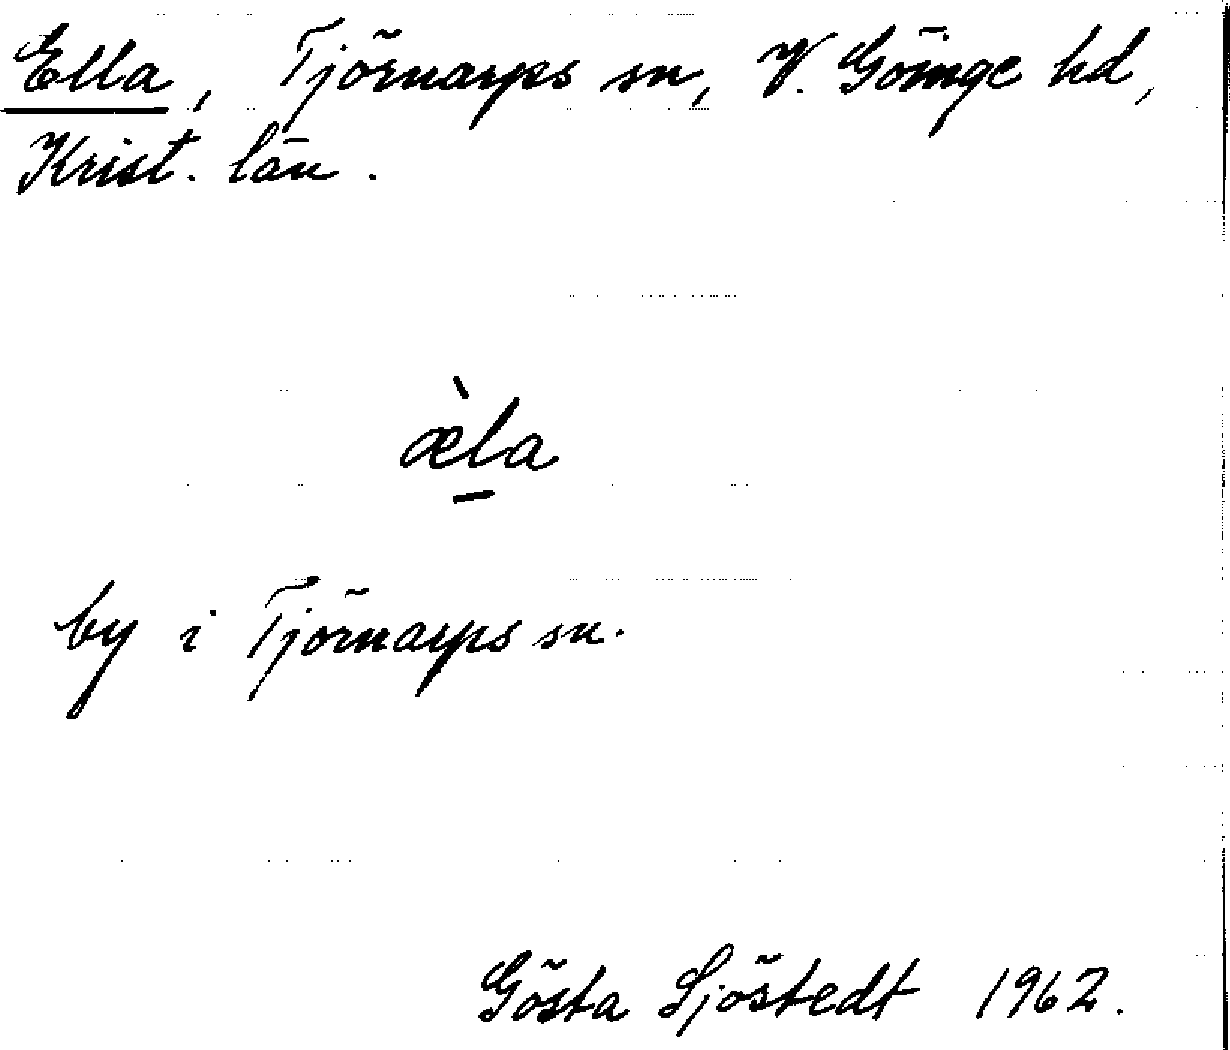 Ella, Tjörnarps sn, V. Göinge hd,
Krist. län.
æ̀ḻa
by i Tjörnarps sn.
Gösta Sjöstedt 1962.